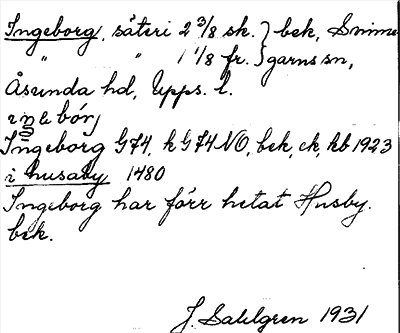 Ingeborg, säteri 2 3/8 sk. } bek, Simme
" " 1 1/8 fr. } garns sn,
Åsunda hd, Upps. l.
Ingeborg G74, k G74 NO, bek, ck, kb 1923
i husaby 1480
Ingeborg har förr hetat Husby.
bek.
J. Sahlgren 1931